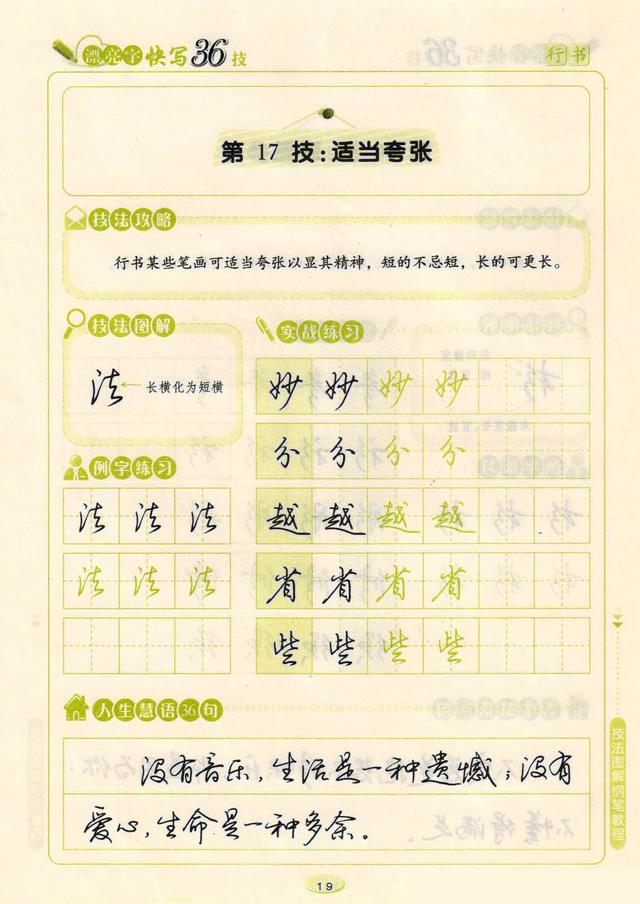 漂亮字快写36技
行书
第 17 技：适当夸张
技法攻略
行书某些笔画可适当夸张以显其精神，短的不忌短，长的可更长。
技法图解
法←长横化为短横
实战练习
妙 妙 妙 妙
分 分 分 分
越 越 越 越
省 省 省 省
些 些 些 些
例字练习
法 法 法
法 法 法
人生慧语36句
没有音乐，生活是一种遗憾；没有
爱心，生命是一种多余。
技法图解钢笔教程
19